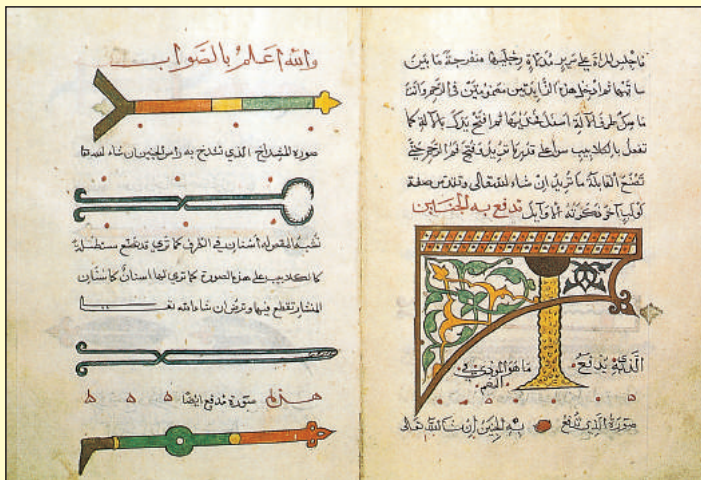 فاجلس المراة على سرير مدلاة رجليها منفرجة ما بين
ساقيها ثم ادخل هذين الزايدتين مضمومتين في الرحم وانت
ماسك طرف الالة اسفل فخذيها ثم افتح يدك بالالة كما
تفعل بالكلاليب سوا على قدر ما تريد فتح فم الرحم حتى
تصنع القابلة ما تريد ان شاء الله تعالى صفة
لولب اخر ذكرته الاوايل تدفع به الجنين
الذي يدفع ما هو في
صورة الذي تدفع به الجنين ان شا الله تعالى
والله اعلم بالصواب
صورة المشداخ الذي تشدخ به راس الجنين ان شاء الله
تشبه المقص له اسنان في الطرف كما ترى قد تصنع مستطيلة
كالكلاليب على هذه الصورة كما ترى لها اسنان كاسنان
المنشار تقطع فيها وترض ان شاء الله
هذه صورة مدفع ايضا